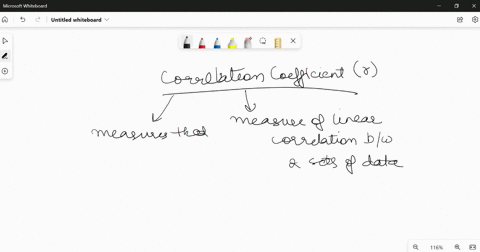 Microsoft Whiteboard
Untitled whiteboard
Correlation Coefficient (r)
measures that
measure of linear
correlation b/w
2 sets of data
116%